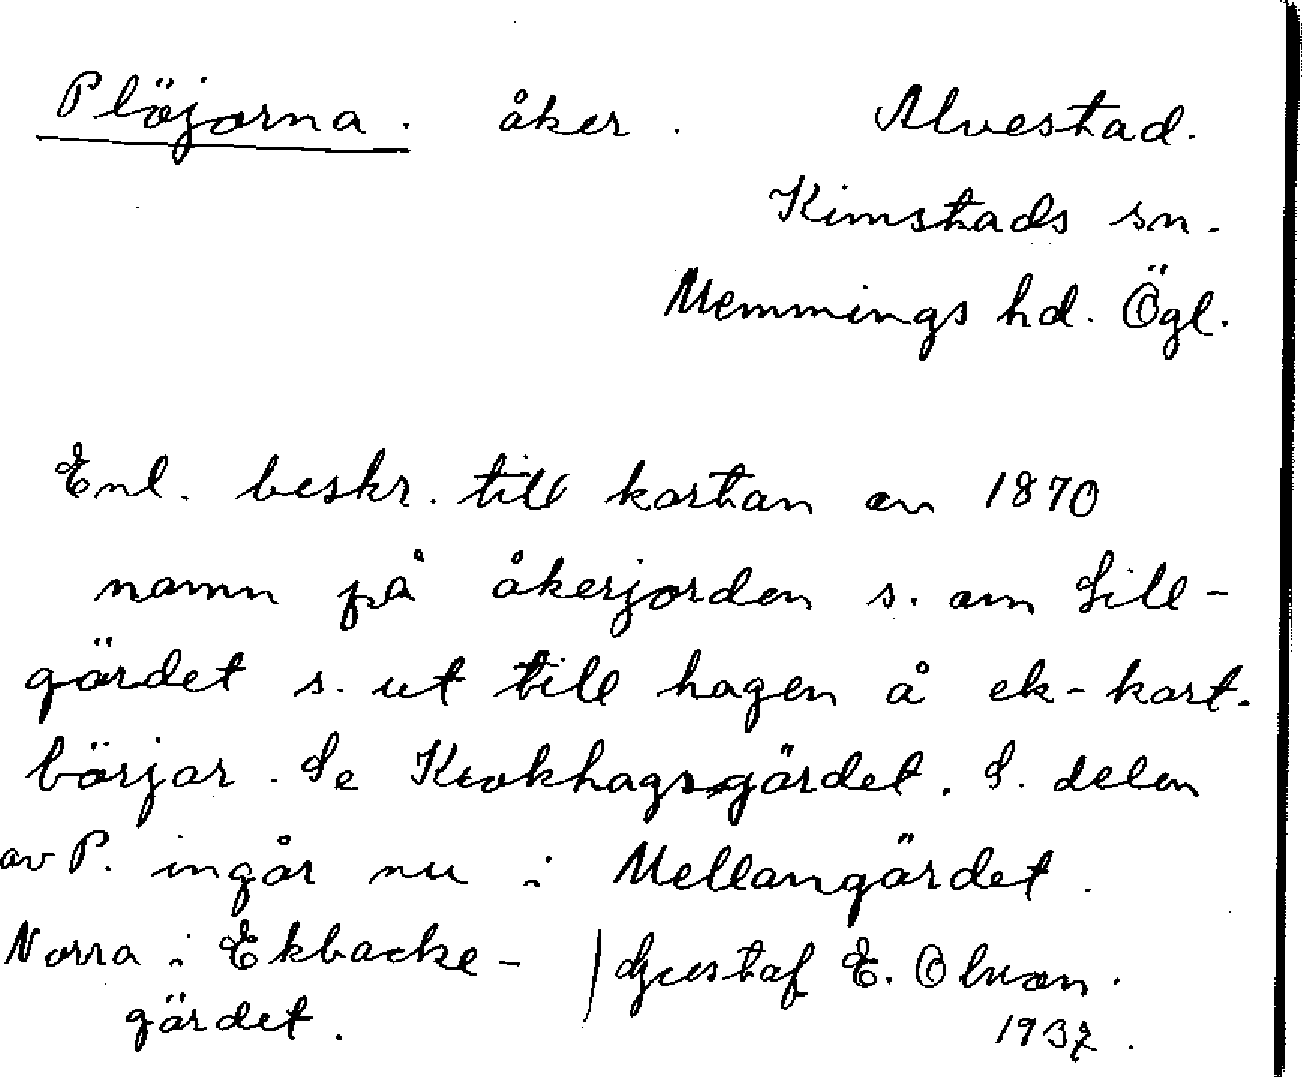 Plöjorna. åker. Alvestad.
Kimstads sn.
Memmings hd. Ögl.
Enl. beskr. till kartan av 1870
namn på åkerjorden s. om Lill-
gärdet s. ut till hagen å ek-kart.
börjar. Se Krokhagsgärdet. S. delen
av P. ingår nu i Mellangärdet.
Norra i Ekbacke-
gärdet.
Gustaf E. Olvan.
1937.